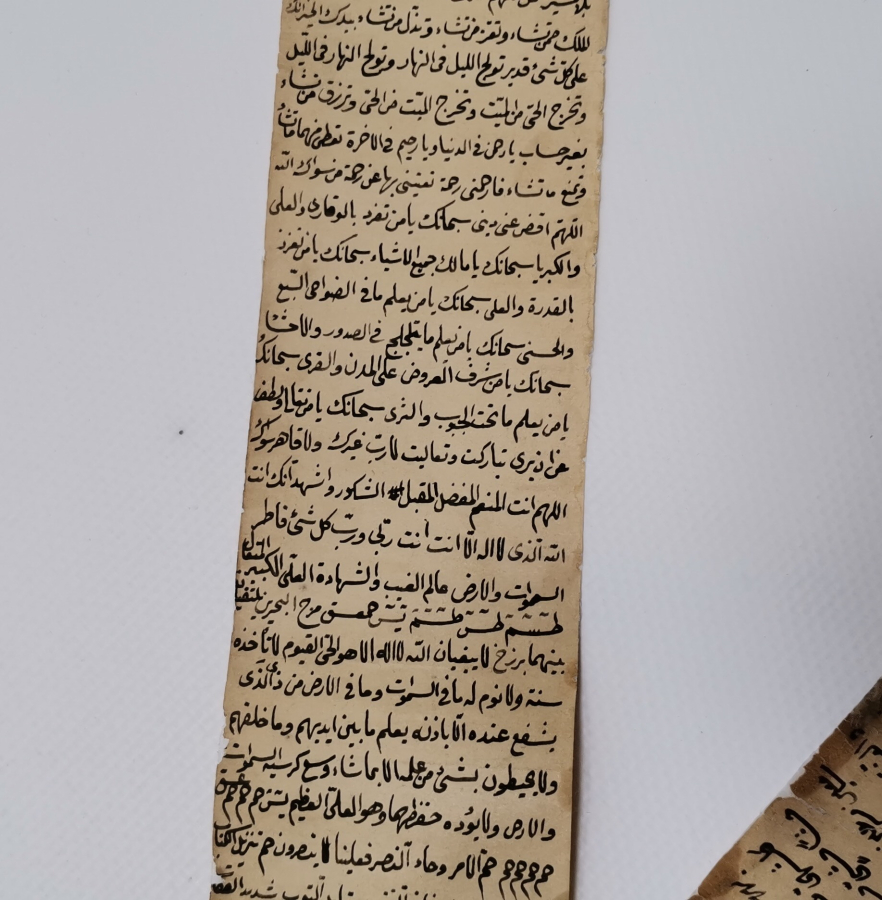 الملك ممن تشاء وتعز من تشاء وتذل من تشاء بيدك الخير انك
على كل شئ قدير تولج الليل فى النهار وتولج النهار فى الليل
وتخرج الحى من الميت وتخرج الميت من الحى وترزق من تشاء
بغير حساب يا رحمن فى الدنيا ويا رحيم فى الاخرة تعطى منهما ما تشاء
وتمنع ما تشاء فارحمنى رحمة تغننى بها عن رحمة من سواك الله
اللهم اقض عنى دينى سبحانك يا من تفرد بالوقار والعلى
والكبريا سبحانك يا مالك جميع الاشياء سبحانك يا من تعزز
بالقدرة والعلى سبحانك يا من يعلم ما فى السبع
والحسنى سبحانك يا من يعلم ما يتلجلج فى الصدور والاحشا
سبحانك يا من شرف العروض على المدن والقرى سبحانك
يا من يعلم ما تحت الجبوب والثرى سبحانك يا من تعالى ولطف
عن ان يرى تباركت وتعاليت لا رب غيرك ولا قاهر سواك
اللهم انت المنعم المفضل المقبل الشكور واشهد انك انت
الله الذى لا اله الا انت انت ربى ورب كل شئ فاطر
السموات والارض عالم الغيب والشهادة العلى الكبير المتعال
طسم طس طسم يس حمعسق مرج البحرين يلتقيان
بينهما برزخ لا يبغيان الله لا اله الا هو الحى القيوم لا تأخذه
سنة ولا نوم له ما فى السموات وما فى الارض من ذا الذى
يشفع عنده الا باذنه يعلم ما بين ايديهم وما خلفهم
ولا يحيطون بشئ من علمه الا بما شاء وسع كرسيه السموات
والارض ولا يؤده حفظهما وهو العلى العظيم يس حم حم حم عسق
حم حم حم حم حم الامر وجاء النصر فعلينا لا ينصرون حم تنزيل الكتاب